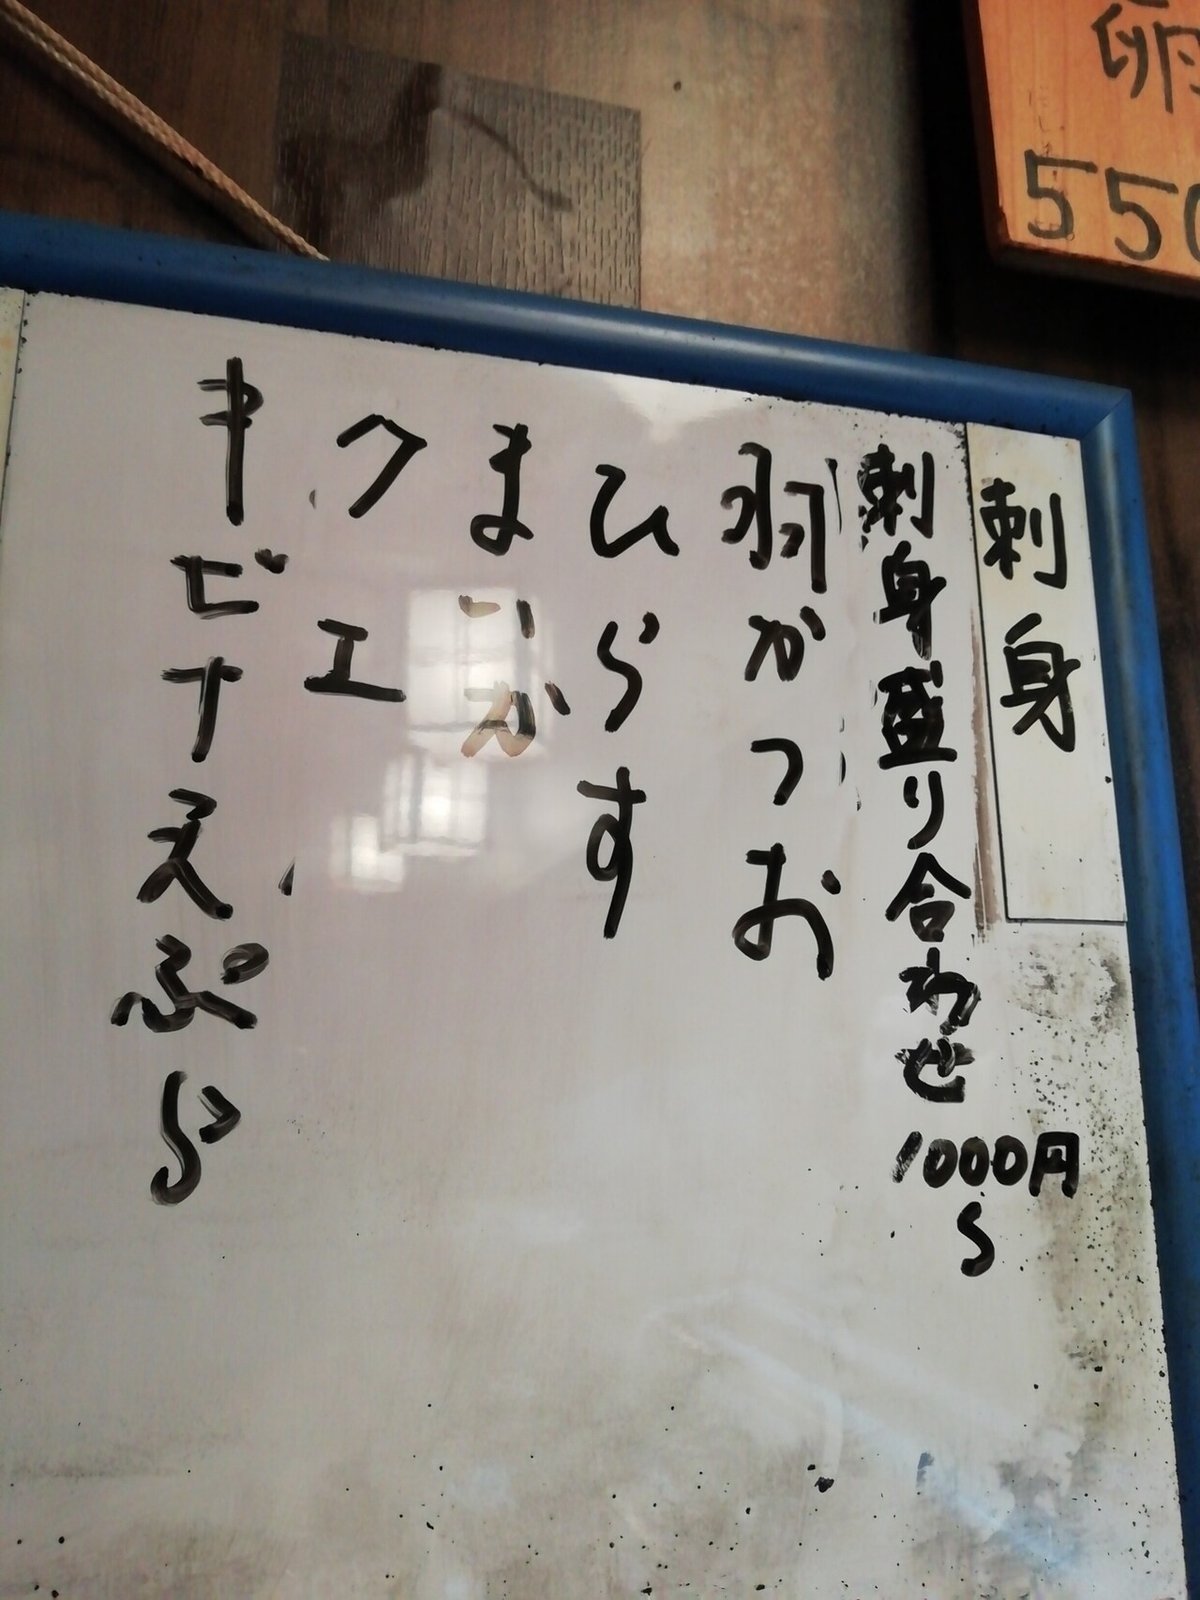 卵
550
刺身
刺身盛り合わせ
1000円
〜
羽かつお
ひらす
まいか
クエ
キビナ天ぷら